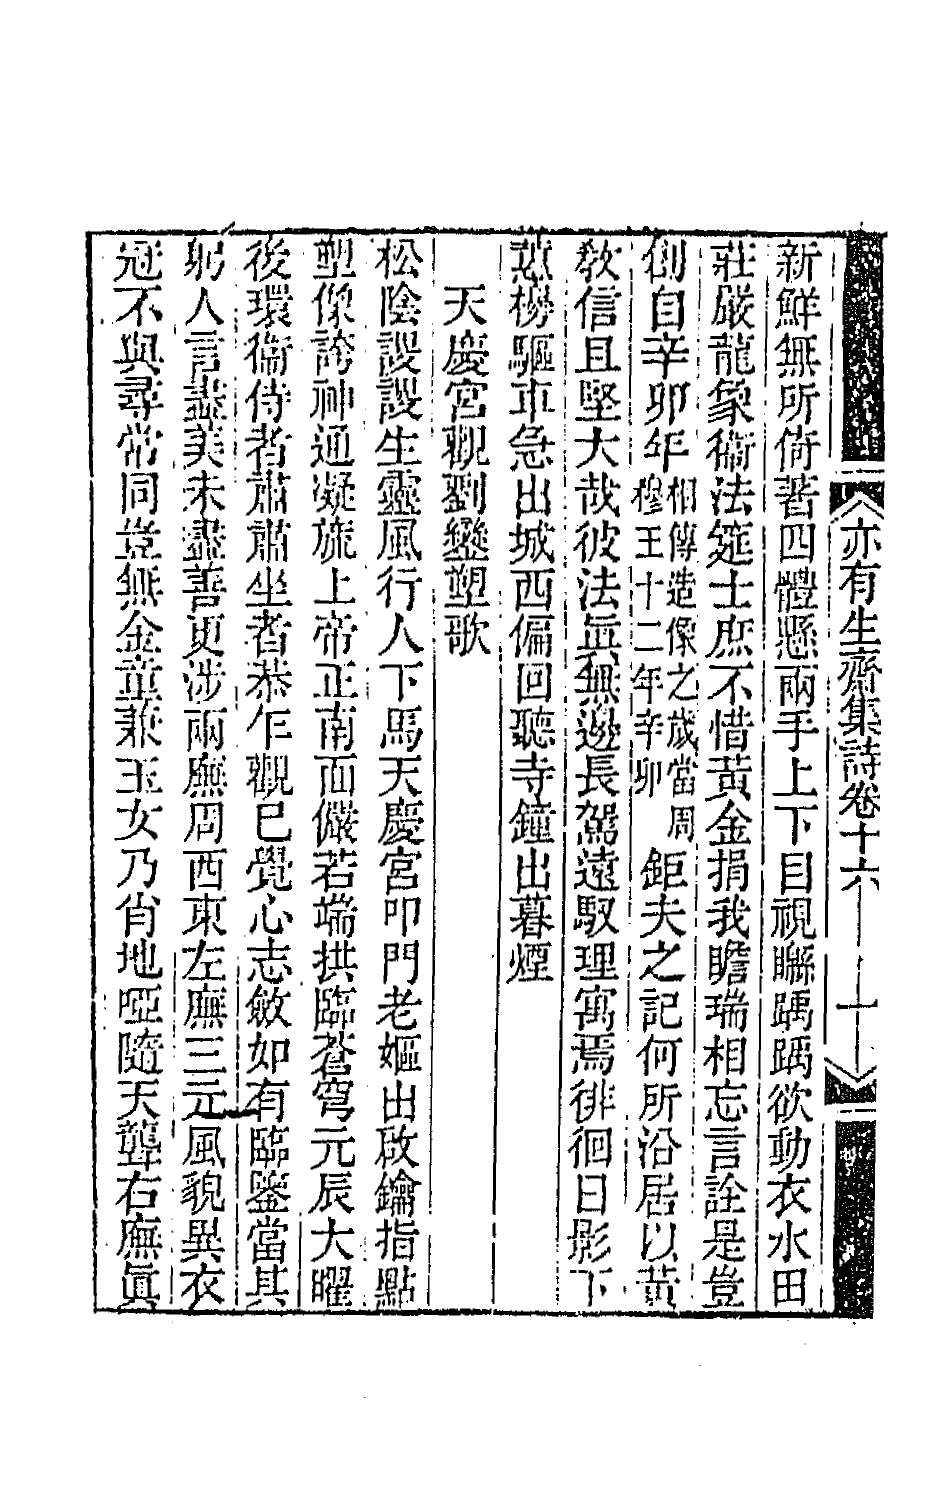 亦有生齋集詩卷十六 十一
新鮮無所倚著四體懸兩手上下目視聯踽踽欲動衣水田
莊嚴龍象衞法筵士庶不惜黃金捐我瞻瑞相忘言詮是豈
創自辛卯年相傳造像之歲當周穆王十二年辛卯鉅夫之記何所沿居以黃
教信且堅大哉彼法眞無邊長駕遠馭理寓焉徘徊日影下
榜驅車急出城西偏回聽寺鐘出暮煙
天慶宮觀劉鑾塑歌
松陰謖謖生靈風行人下馬天慶宮叩門老嫗出啟鑰指點
塑像誇神通凝旒上帝正南面儼若端拱臨蒼穹元辰大曜
後環衞侍者肅肅坐者恭乍觀已覺心志斂如有臨鑒當其
躬人言盡美未盡善更涉兩廡周西東左廡三元風貌異衣
冠不與尋常同豈無金童兼玉女乃肖地啞隨天聾右廡眞